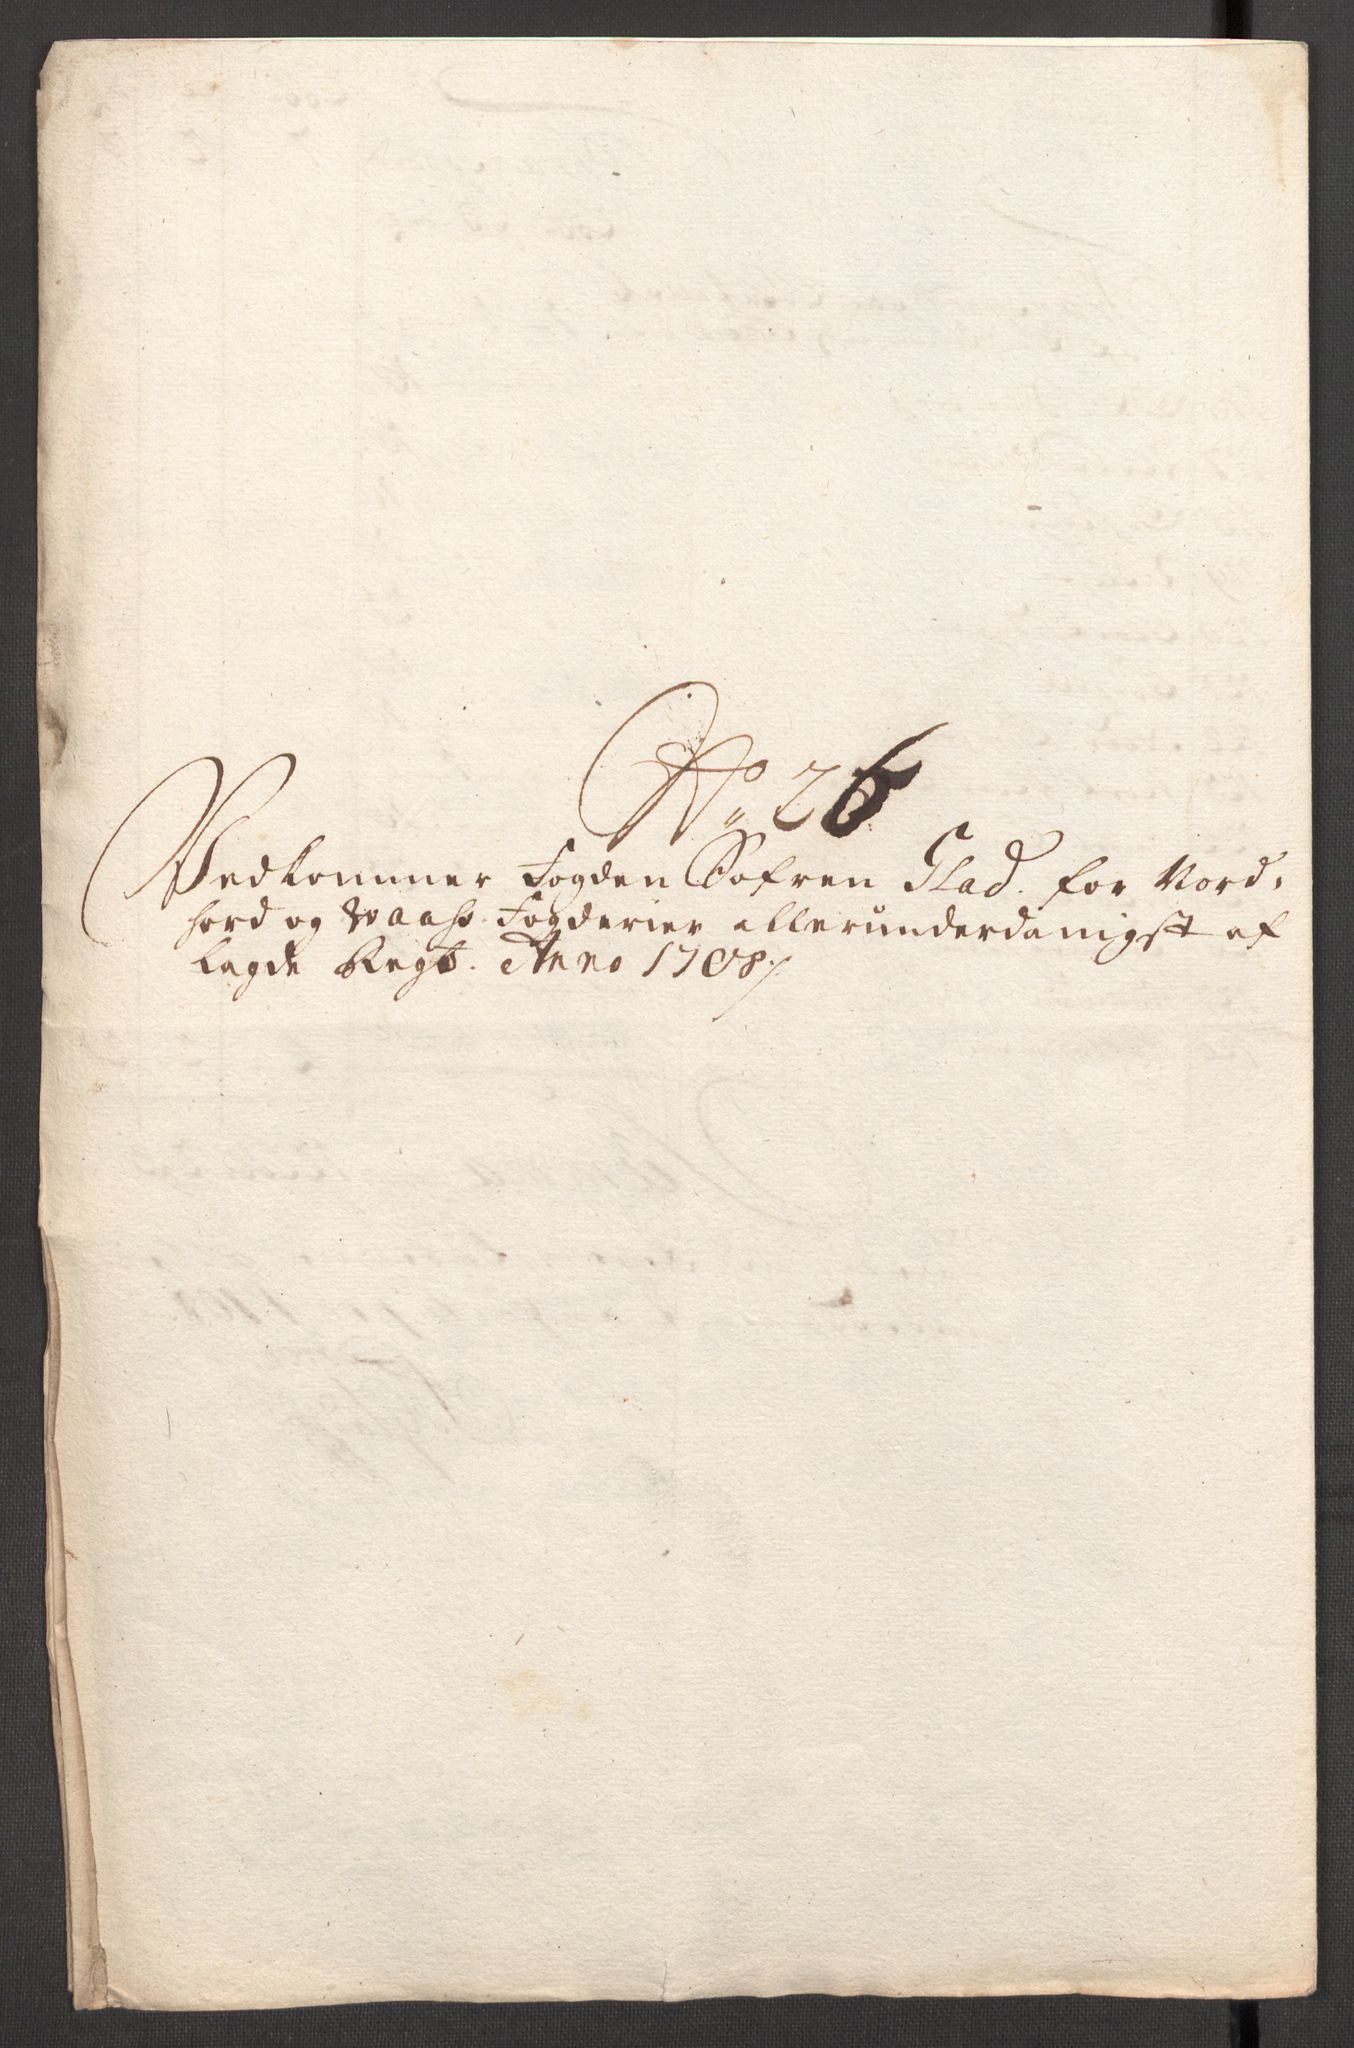 No: 26
Vedkommer Fogden Søfren Glad. for Nord,
hord og Waahs. Fogderier allerunderdanigst af
lagde Regb. Anno 1708:/